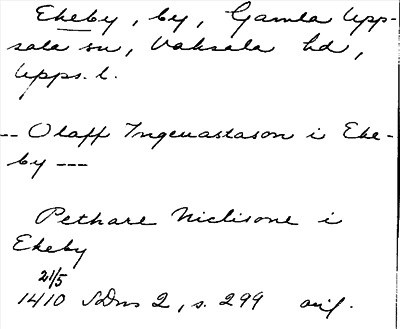 Ekeby, by, Gamla Upp-
sala sn, Vaksala hd,
Upps. l.
-- Olaff Ingeuastason i Eke-
by ---
Pethare Niclisone i
Ekeby
21/5
1410 SDns 2, s. 299 orig.